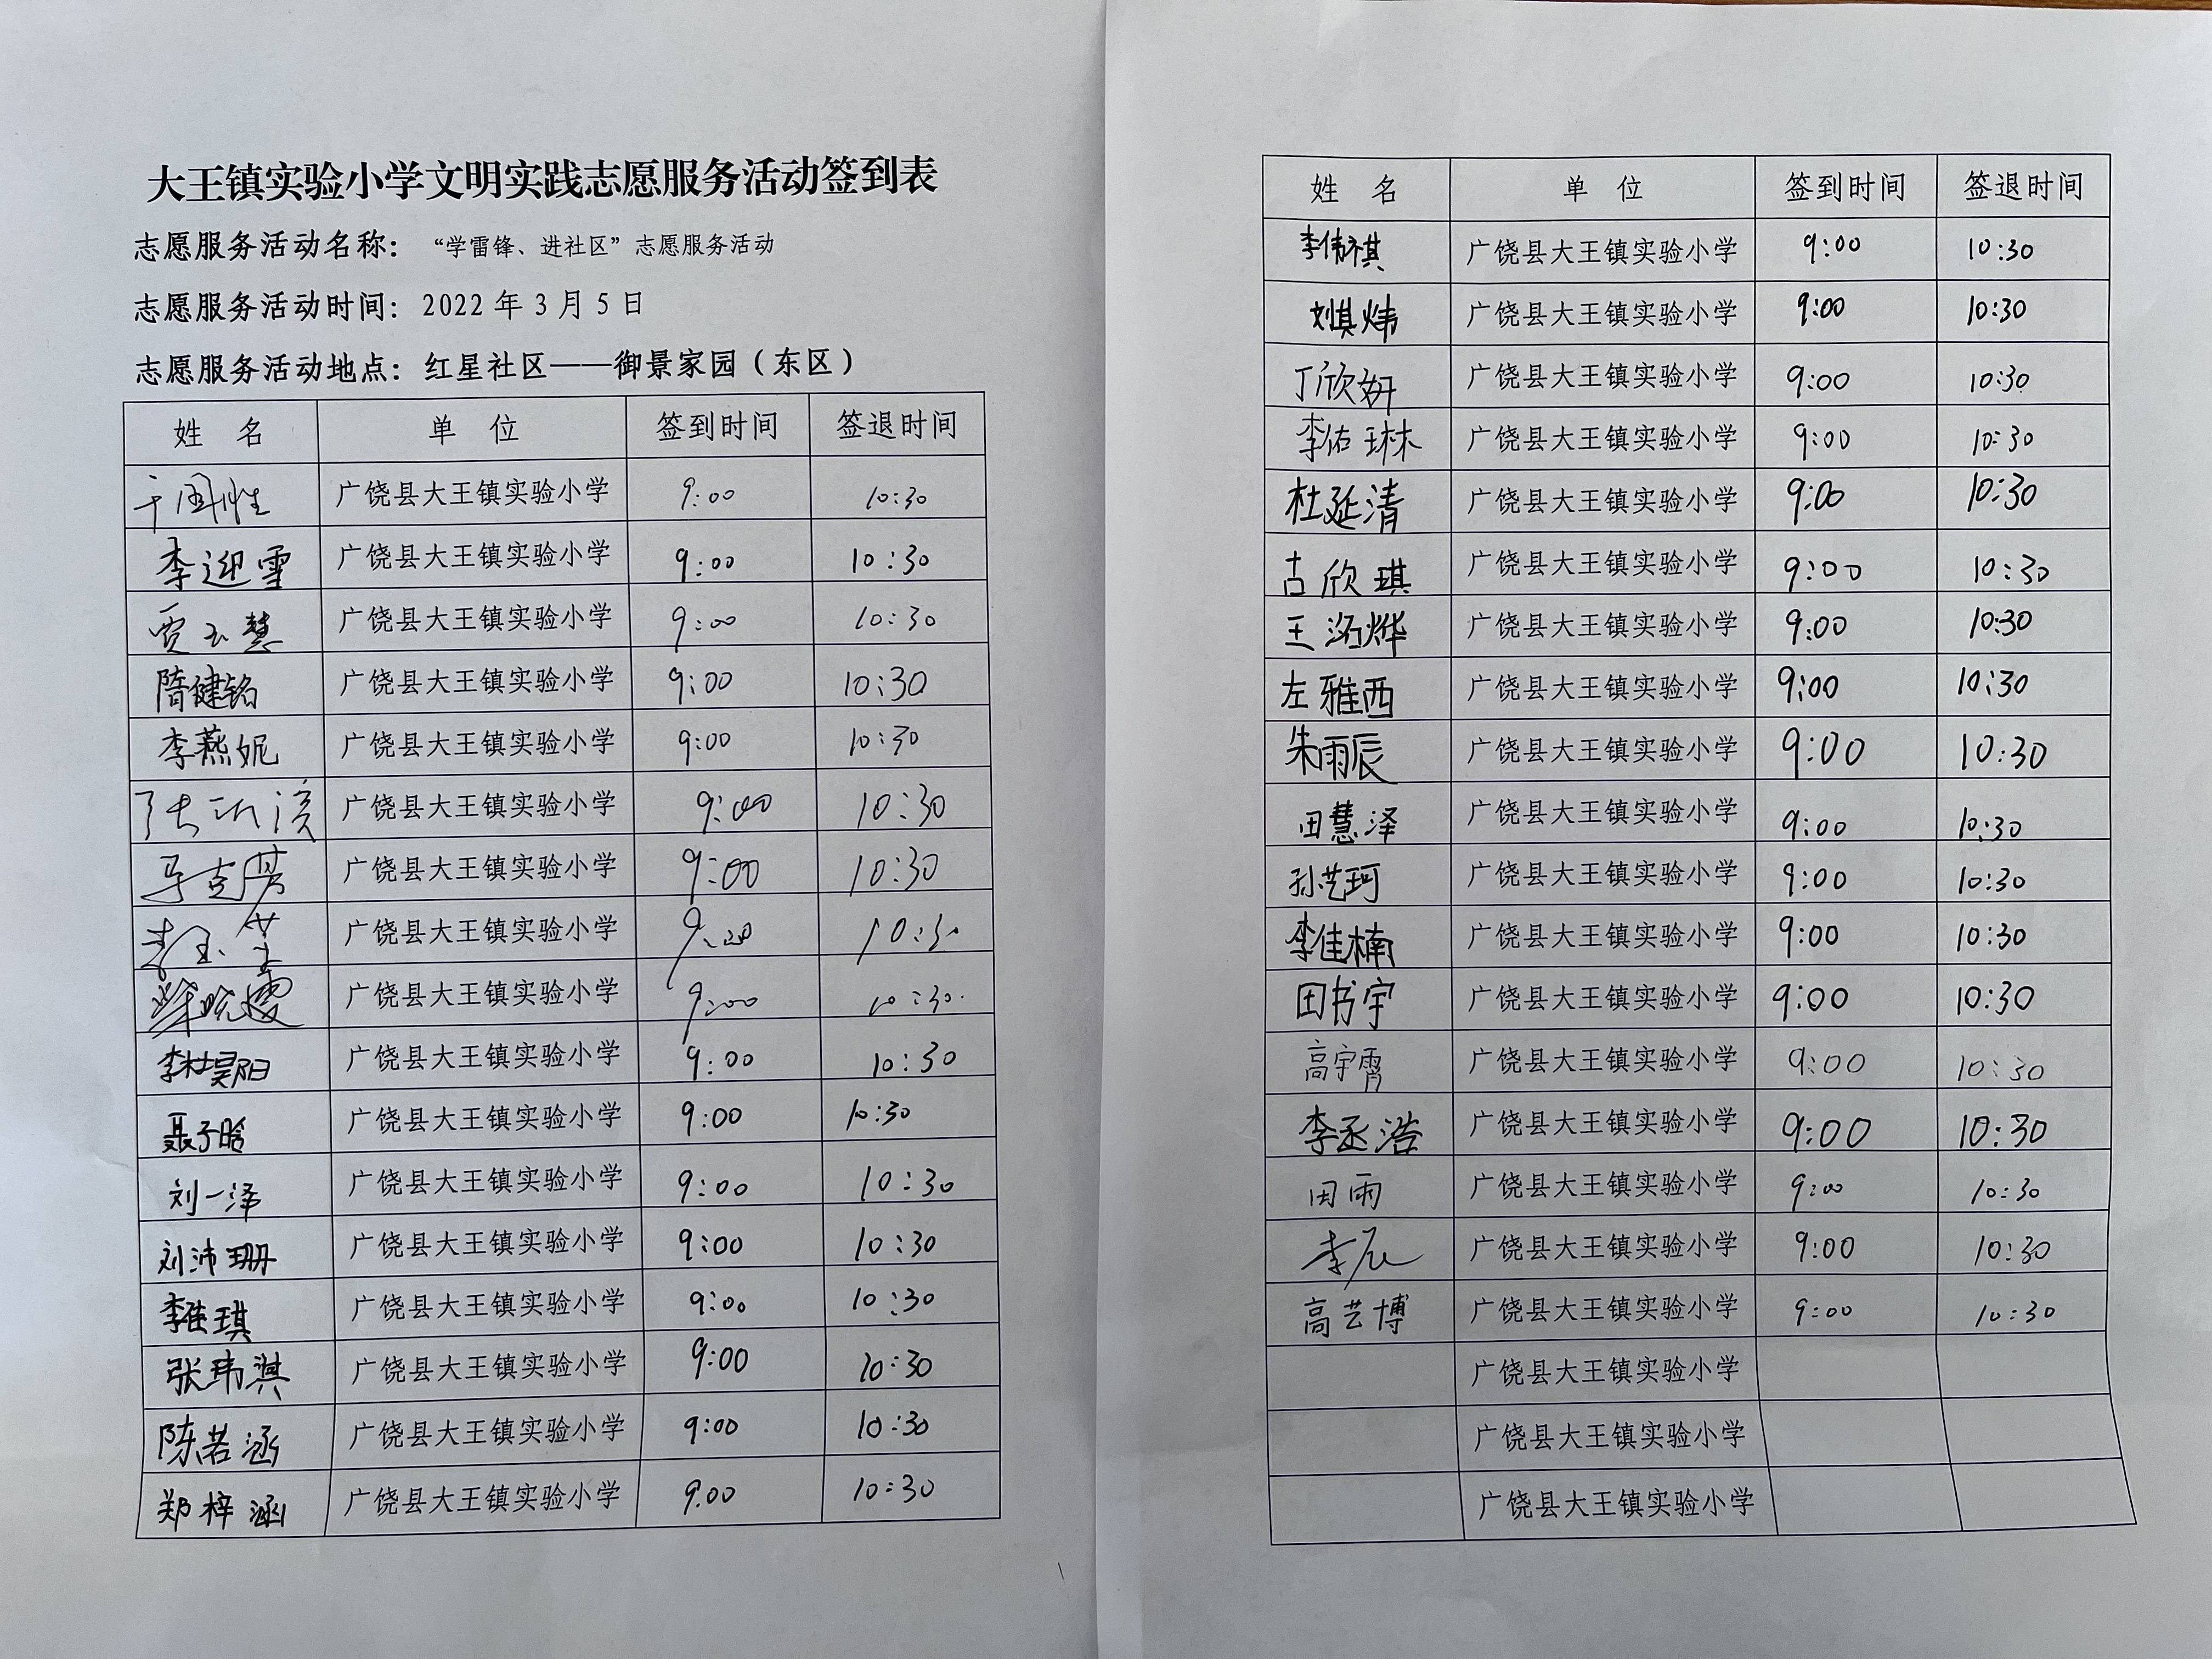 大王镇实验小学文明实践志愿服务活动签到表
志愿服务活动名称：“学雷锋、进社区”志愿服务活动
志愿服务活动时间：2022 年 3 月 5 日
志愿服务活动地点：红星社区——御景家园（东区）
姓 名 单 位 签到时间 签退时间
广饶县大王镇实验小学 9:00 10:30
李迎雪 广饶县大王镇实验小学 9:00 10:30
贾玉慧 广饶县大王镇实验小学 9:00 10:30
隋健铭 广饶县大王镇实验小学 9:00 10:30
李燕妮 广饶县大王镇实验小学 9:00 10:30
广饶县大王镇实验小学 9:00 10:30
广饶县大王镇实验小学 9:00 10:30
广饶县大王镇实验小学 9:00 10:30
广饶县大王镇实验小学 9:00 10:30
李杜昊阳 广饶县大王镇实验小学 9:00 10:30
聂子晗 广饶县大王镇实验小学 9:00 10:30
刘一泽 广饶县大王镇实验小学 9:00 10:30
刘沛珊 广饶县大王镇实验小学 9:00 10:30
李佳琪 广饶县大王镇实验小学 9:00 10:30
张玮淇 广饶县大王镇实验小学 9:00 10:30
陈若涵 广饶县大王镇实验小学 9:00 10:30
郑梓涵 广饶县大王镇实验小学 9:00 10:30
姓 名 单 位 签到时间 签退时间
李伟祺 广饶县大王镇实验小学 9:00 10:30
刘其炜 广饶县大王镇实验小学 9:00 10:30
丁欣妍 广饶县大王镇实验小学 9:00 10:30
李佑琳 广饶县大王镇实验小学 9:00 10:30
杜延清 广饶县大王镇实验小学 9:00 10:30
古欣琪 广饶县大王镇实验小学 9:00 10:30
王洺烨 广饶县大王镇实验小学 9:00 10:30
左雅西 广饶县大王镇实验小学 9:00 10:30
朱雨辰 广饶县大王镇实验小学 9:00 10:30
田慧泽 广饶县大王镇实验小学 9:00 10:30
孙艺珂 广饶县大王镇实验小学 9:00 10:30
李佳楠 广饶县大王镇实验小学 9:00 10:30
田书宇 广饶县大王镇实验小学 9:00 10:30
高宇霄 广饶县大王镇实验小学 9:00 10:30
李丞浩 广饶县大王镇实验小学 9:00 10:30
田雨 广饶县大王镇实验小学 9:00 10:30
李辰 广饶县大王镇实验小学 9:00 10:30
高艺博 广饶县大王镇实验小学 9:00 10:30
广饶县大王镇实验小学
广饶县大王镇实验小学
广饶县大王镇实验小学